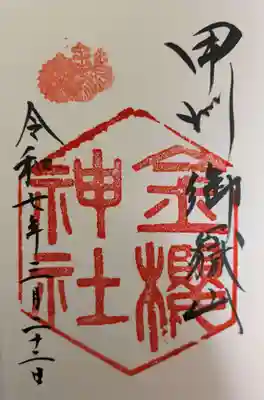 甲州御嶽山
金櫻
神社
令和弐年二月二十二日